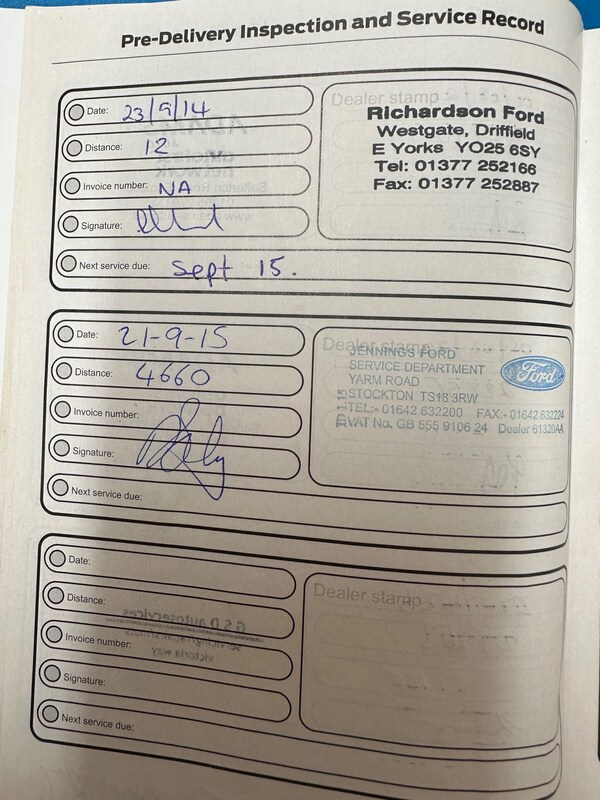 Pre-Delivery Inspection and Service Record
Date: 23/9/14
Distance: 12
Invoice number: NA
Signature:
Next service due: Sept 15.
Dealer stamp
Richardson Ford
Westgate, Driffield
E Yorks YO25 6SY
Tel: 01377 252166
Fax: 01377 252887
Date: 21-9-15
Distance: 4660
Invoice number:
Signature:
Next service due:
Dealer stamp
JENNINGS FORD
SERVICE DEPARTMENT
YARM ROAD
STOCKTON TS18 3RW
TEL:- 01642 632200 FAX:- 01642 632224
VAT No. GB 555 9106 24 Dealer 61320AA
Ford
Date:
Distance:
Invoice number:
Signature:
Next service due:
Dealer stamp
G S D autoservices
victoria way